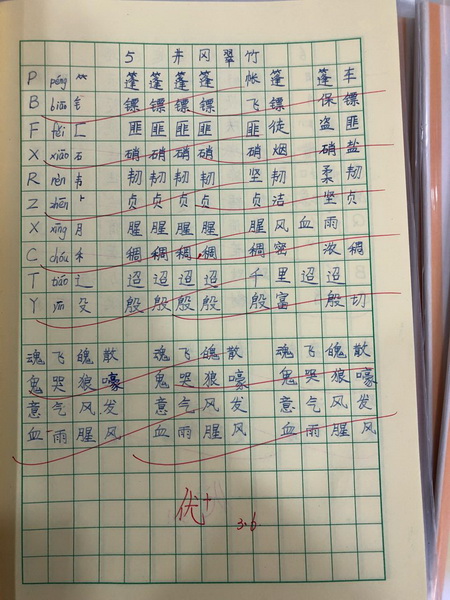 5 井冈翠竹
P péng ⺮ 篷篷篷篷 帐篷 篷车
B biāo 钅 镖镖镖镖 飞镖 保镖
F fěi 匚 匪匪匪匪 匪徒 盗匪
X xiāo 石 硝硝硝硝 硝烟 硝盐
R rèn 韦 韧韧韧韧 坚韧 柔韧
Z zhēn ⺊ 贞贞贞贞 贞洁 坚贞
X xīng 月 腥腥腥腥 腥风血雨
C chóu 禾 稠稠稠稠 稠密 浓稠
T tiáo 辶 迢迢迢迢 千里迢迢
Y yīn 殳 殷殷殷殷 殷富 殷切
魂飞魄散 魂飞魄散 魂飞魄散
鬼哭狼嚎 鬼哭狼嚎 鬼哭狼嚎
意气风发 意气风发 意气风发
血雨腥风 血雨腥风 血雨腥风
优+
3.6